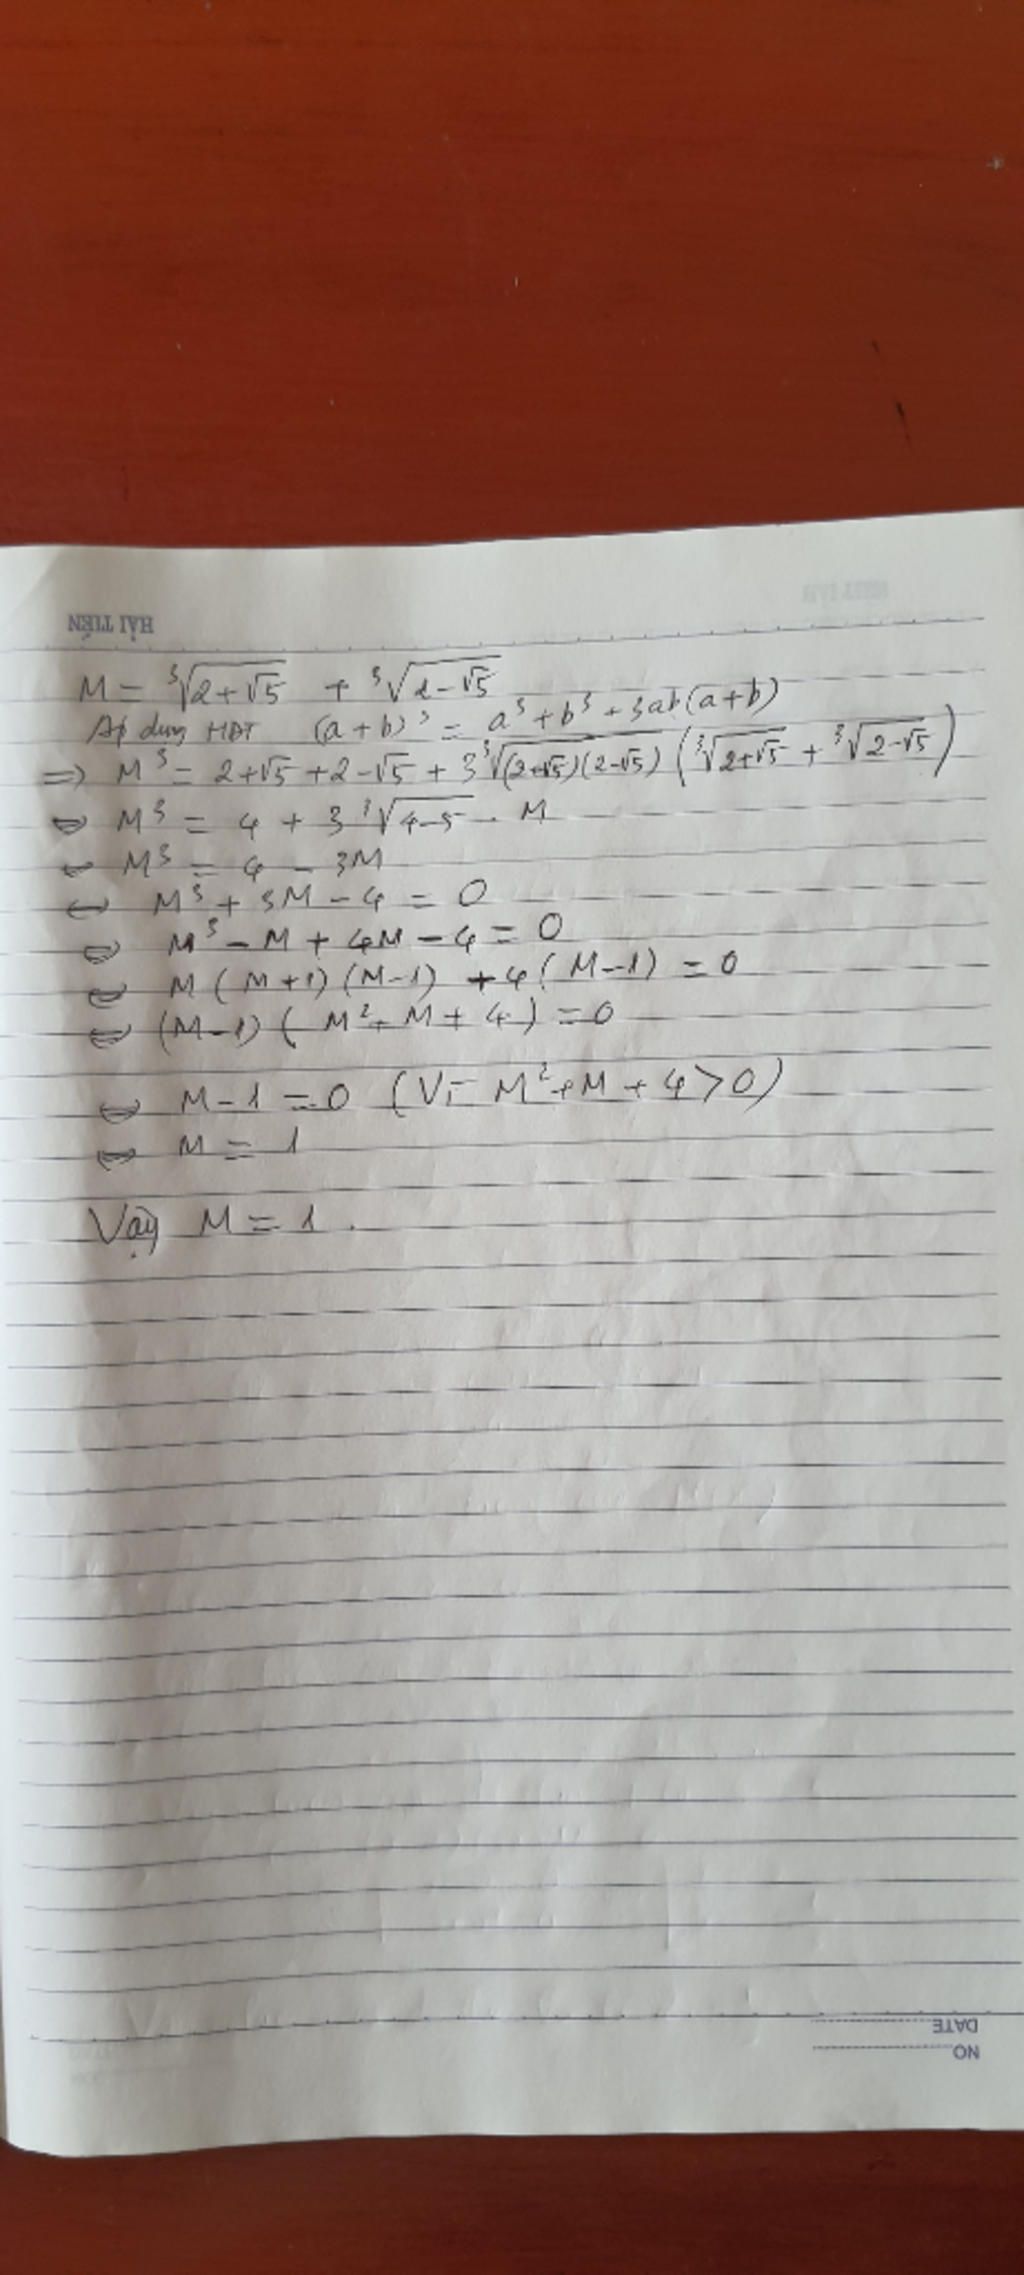 HẢI TIẾN
M = ³√(2+√5) + ³√(2-√5)
Áp dụng HĐT (a+b)³ = a³ + b³ + 3ab(a+b)
=> M³ = 2+√5 + 2-√5 + 3³√((2+√5)(2-√5)) (³√(2+√5) + ³√(2-√5))
⇔ M³ = 4 + 3 ³√(4-5) . M
⇔ M³ = 4 - 3M
⇔ M³ + 3M - 4 = 0
⇔ M³ - M + 4M - 4 = 0
⇔ M(M+1)(M-1) + 4(M-1) = 0
⇔ (M-1)(M² + M + 4) = 0
⇔ M-1 = 0 (Vì M² + M + 4 > 0)
⇔ M = 1
Vậy M = 1.
DATE
NO